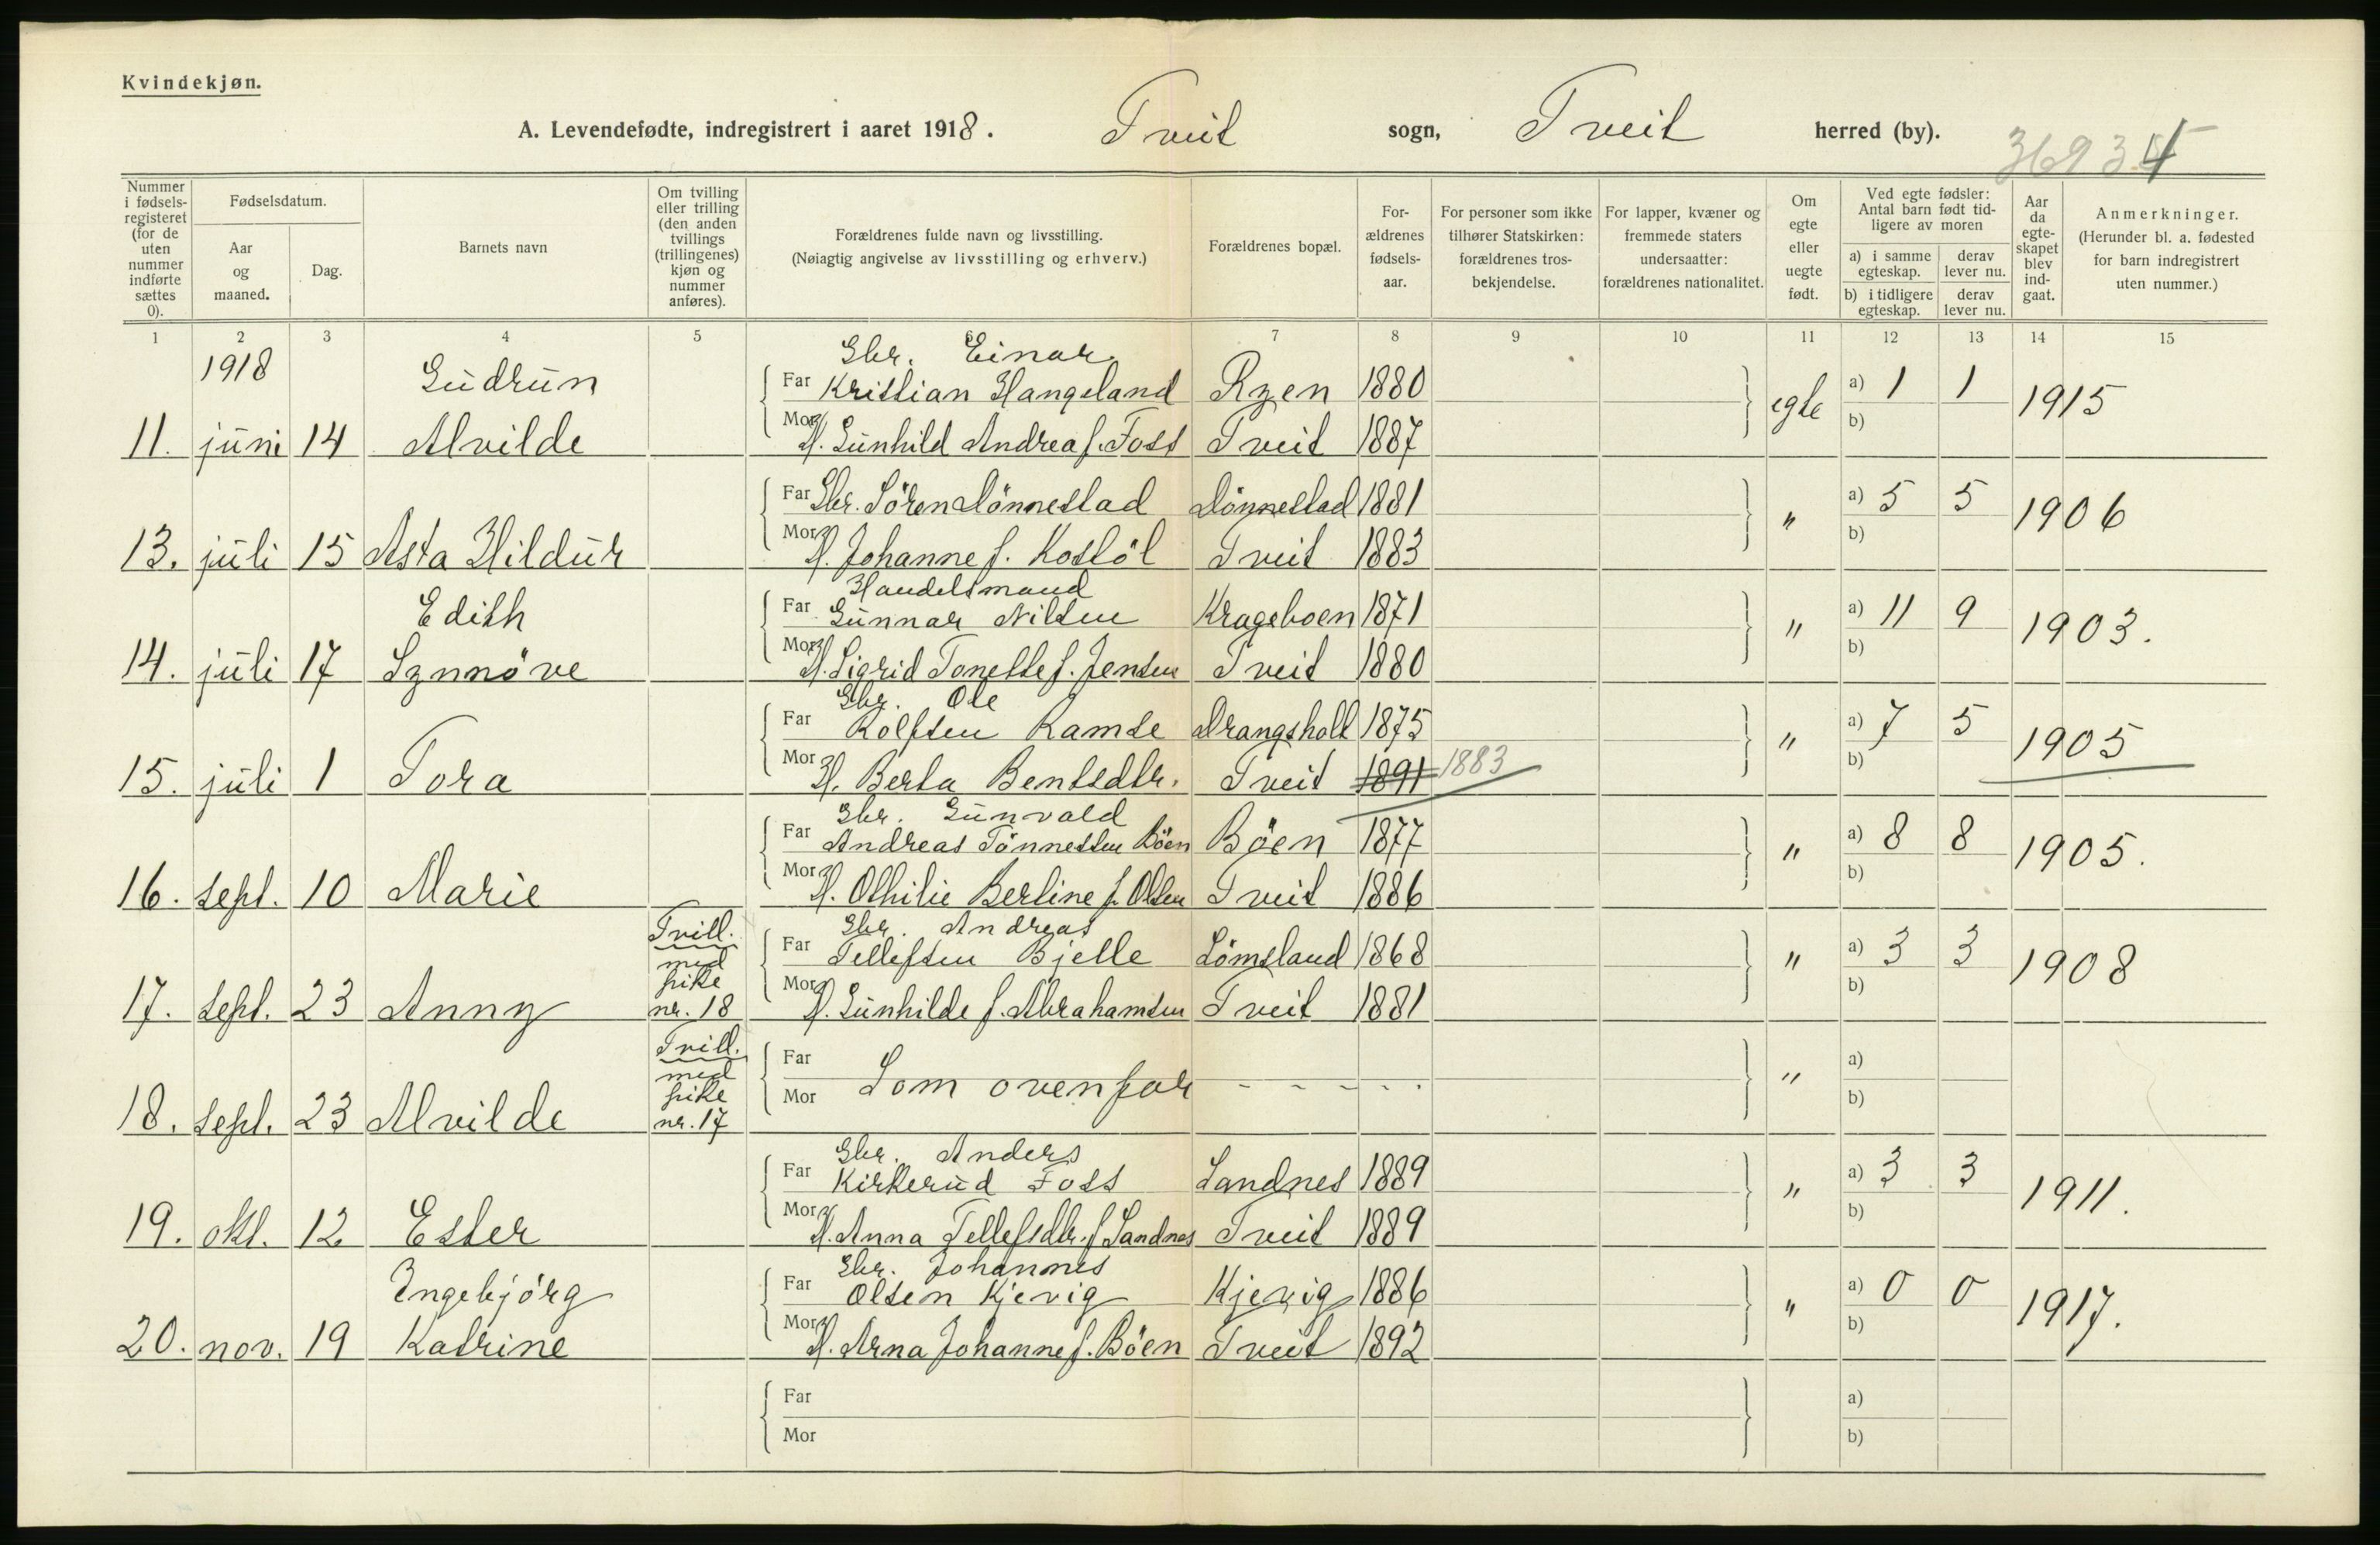 Kvindekjøn.
A. Levendefødte, indregistrert i aaret 1918. Tveit sogn, Tveit herred (by).
3693 4
Nummer i fødsels-registeret (for de uten nummer indførte sættes 0).
Fødselsdatum.
Aar og maaned.
Dag.
Barnets navn
Om tvilling eller trilling (den anden tvillings (trillingenes) kjøn og nummer anføres).
Forældrenes fulde navn og livsstilling.
(Nøiagtig angivelse av livsstilling og erhverv.)
Forældrenes bopæl.
For-ældrenes fødsels-aar.
For personer som ikke tilhører Statskirken: forældrenes tros-bekjendelse.
For lapper, kvæner og fremmede staters undersaatter: forældrenes nationalitet.
Om egte eller uegte født.
Ved egte fødsler: Antal barn født tid-ligere av moren
a) i samme egteskap.
derav lever nu.
b) i tidligere egteskap.
derav lever nu.
Aar da egte-skapet blev ind-gaat.
Anmerkninger.
(Herunder bl. a. fødested for barn indregistrert uten nummer.)
1 2 3 4 5 6 7 8 9 10 11 12 13 14 15
1918 Gudrun Gbr. Einar
Far Kristian Hangeland Ryen 1880 egte a) 1 1 1915
11. juni 14 Alvilde Mor H. Gunhild Andrea f. Foss Tveit 1887 b)
Far Gbr. Sören Dönnestad Dönnestad 1881 " a) 5 5 1906
13. juli 15 Asta Hildur Mor H. Johanne f. Kostöl Tveit 1883 b)
Handelsmand
Edith Far Gunnar Nilsen Krageboen 1871 " a) 11 9 1903.
14. juli 17 Synnöve Mor H. Sigrid Tonette f. Jensen Tveit 1880 b)
Gbr. Ole
Far Rolfsen Ramse Drangsholt 1875 " a) 7 5 1905
15. juli 1 Tora Mor H. Berta Bentsdtr. Tveit 1891 1883 b)
Gbr. Gunvald
Far Andreas Tönnessen Böen Böen 1877 " a) 8 8 1905.
16. sept. 10 Marie Mor H. Othilie Berline f. Olsen Tveit 1886 b)
Tvill. med pike nr. 18 Gbr. Andreas
Far Tellefsen Bjelle Lömsland 1868 " a) 3 3 1908
17. sept. 23 Anny Mor H. Gunhilde f. Abrahamsen Tveit 1881 b)
Tvill. med pike nr. 17
Far " a)
18. sept. 23 Alvilde Mor Som ovenfor - - - - - b)
Gbr. Anders
Far Kirkerud Foss Sandnes 1889 " a) 3 3 1911.
19. okt. 12 Ester Mor H. Anna Tellefsdtr. f. Sandnes Tveit 1889 b)
Gbr. Johannes
Engebjörg Far Olsen Kjevig Kjevig 1886 " a) 0 0 1917.
20. nov. 19 Katrine Mor H. Arna Johanne f. Böen Tveit 1892 b)
Far a)
Mor b)